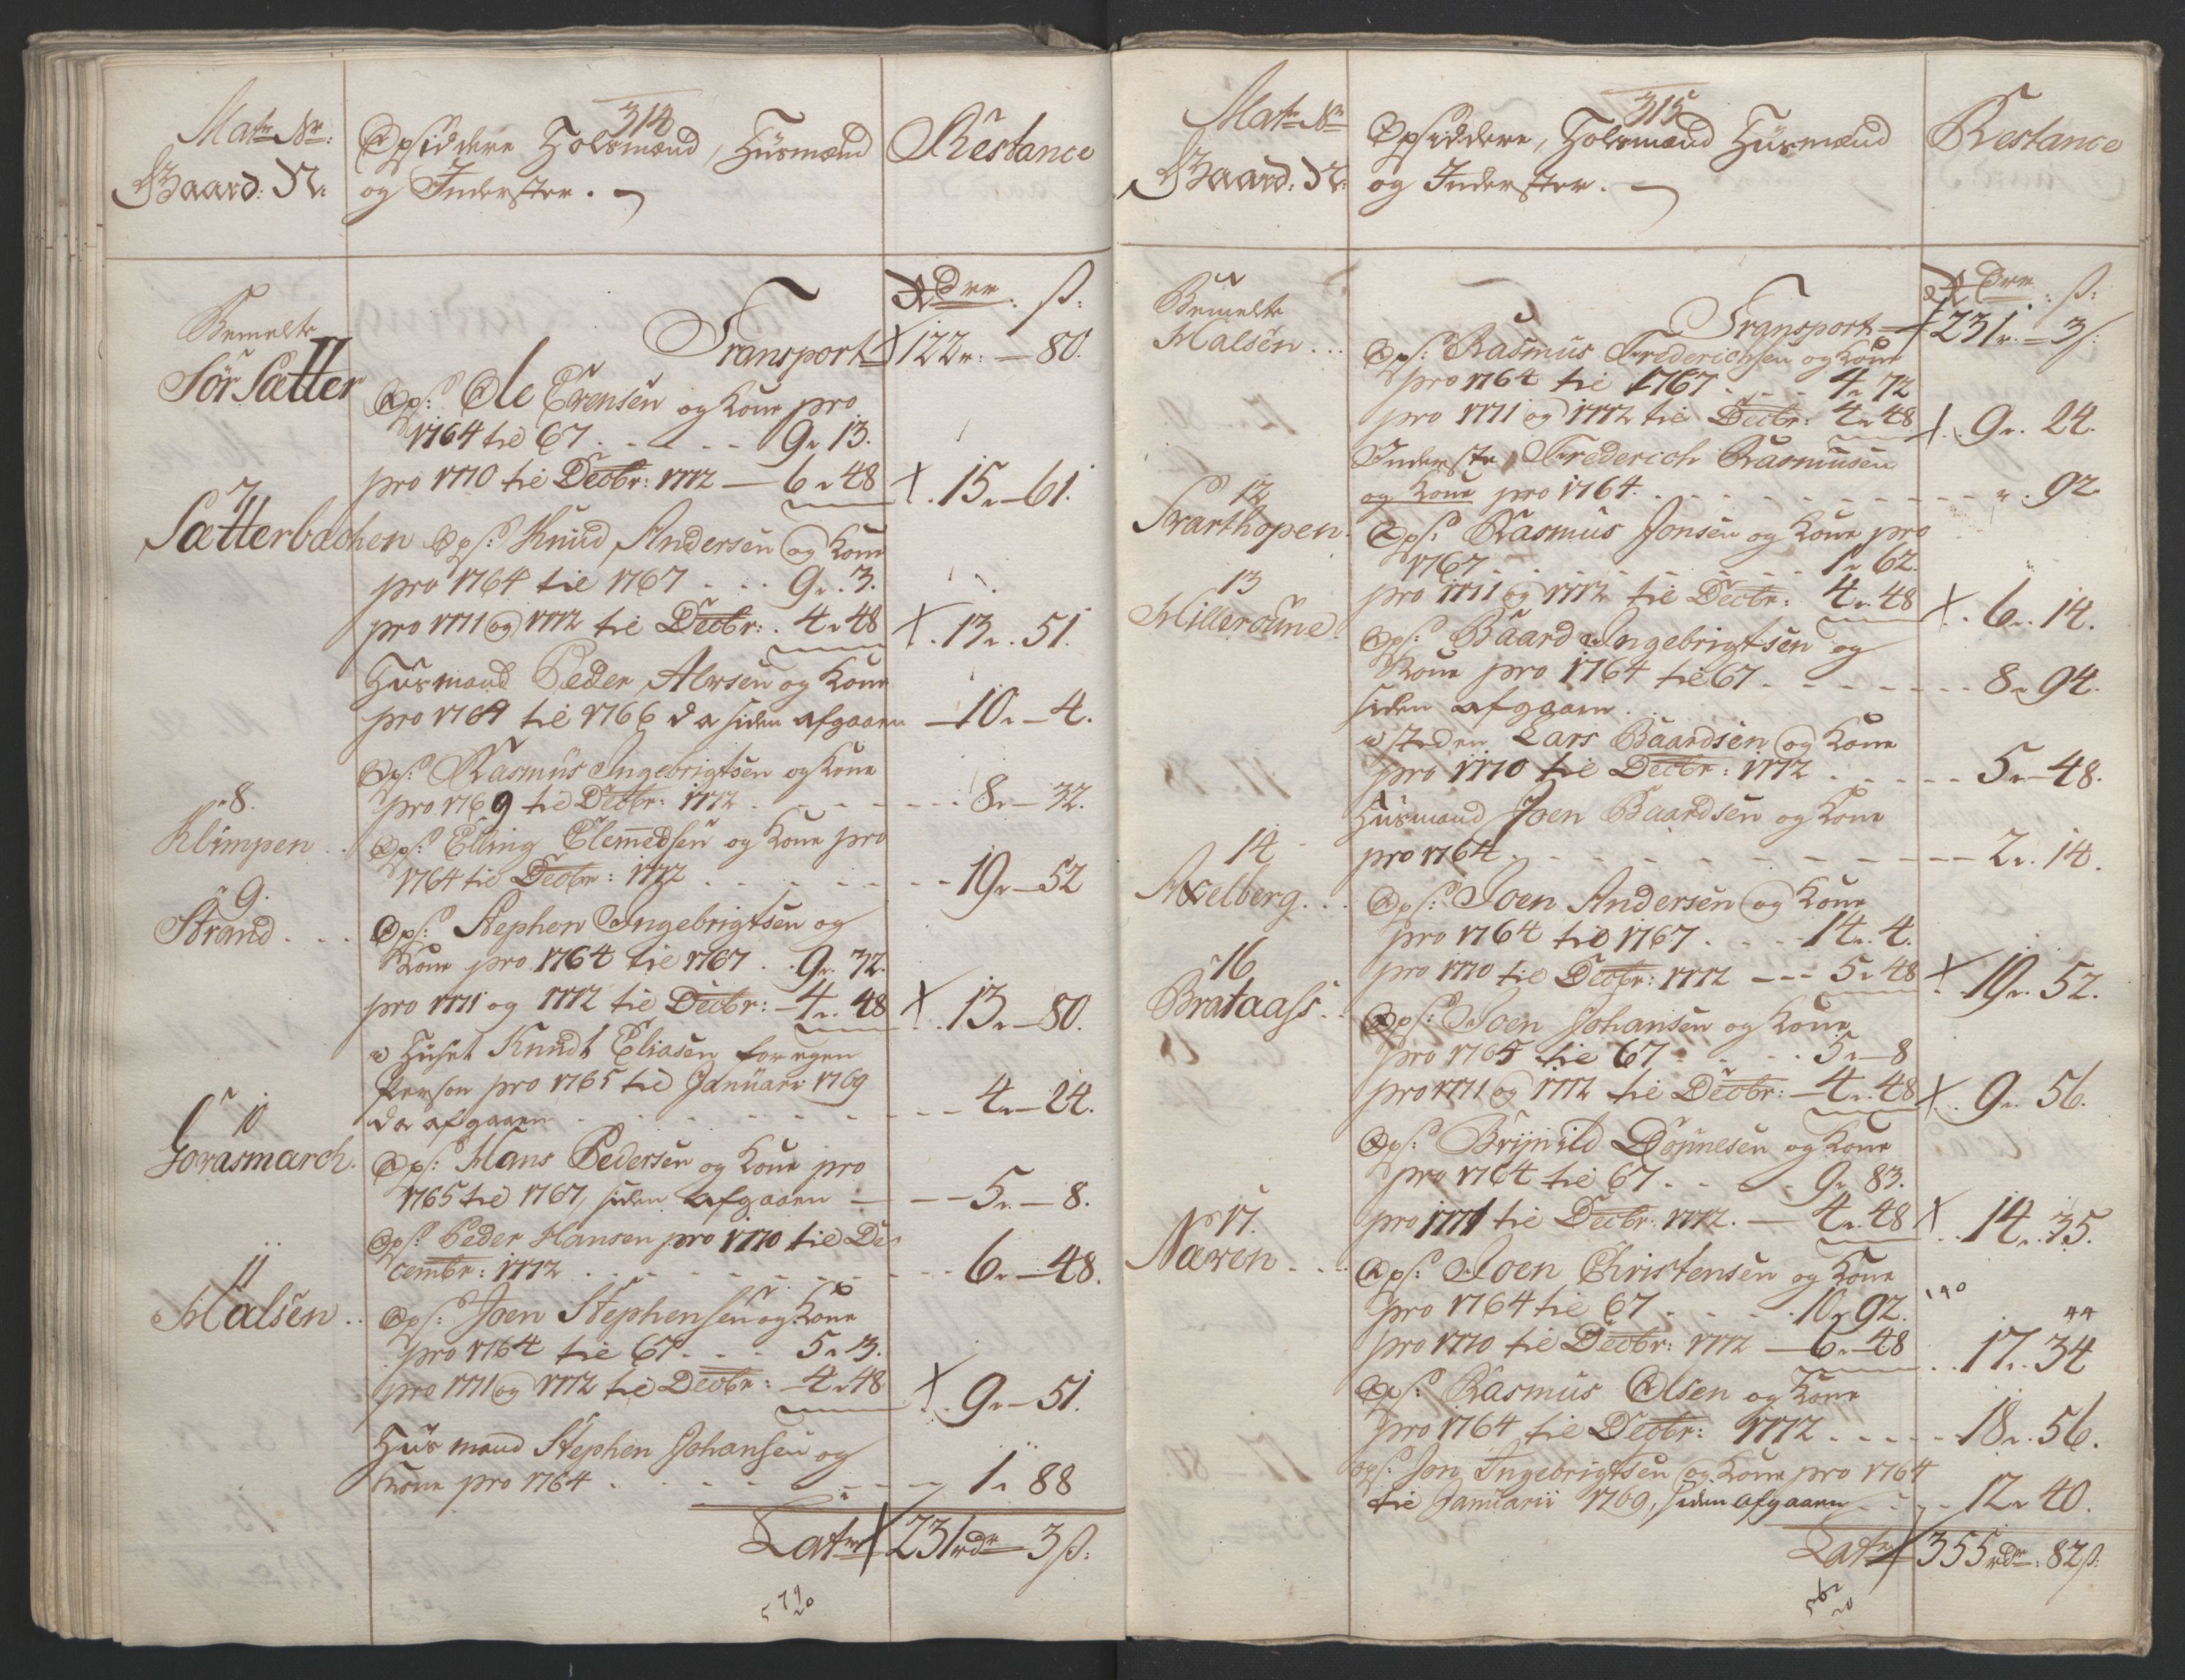 314
Matr: Nr:
Gaard: N:
Opsiddere Folsmænd, Hüsmænd
og Inderster.
Restance
Rdrr: ß:
Transport 122r: — 80.
Bemelte
Sör Sætter
Ops: Ole Erensen og Kone pro
1764 til 67 . . . . 9r 13.
pro 1770 til Decbr: 1772 — 6r 48 15r — 61.
7
Sætterbachen Ops: Knud Andersen og Kone
pro 1764 til 1767 . . . 9r. 3.
pro 1771 og 1772 til Decbr: . 4r 48 13r. 51.
Hüsmand Peder Alvsen og Kone
pro 1764 til 1766 da siden afgaaen — 10r — 4.
Ops: Rasmus Ingebrigtsen og Kone
pro 1769 til Decbr: 1772 . . . . 8r — 32.
8.
Klimpen
Ops: Elling Clemedsen og Kone pro
1764 til Decbr: 1772 . . . . 19r — 52
9.
Strand . . .
Ops: Stephen Ingebrigtsen og
Kone pro 1764 til 1767 . . 9r. 32.
pro 1771 og 1772 til Decbr: — 4r. 48 13r — 80.
i Huset Knudt Eliasen for egen
Person pro 1765 til Januari 1769
da afgaaen . . . . 4r — 24.
10
Gorasmarch.
Ops: Hans Pedersen og Kone pro
1765 til 1767, siden afgaaen — 5r — 8.
Ops: Peder Hansen pro 1770 til De
cembr: 1772 . . . . 6r — 48.
11
Malsen . .
Ops: Joen Stephensen og Kone
pro 1764 til 67 . . . 5r 3.
pro 1771 og 1772 til Decbr: — 4r 48 9r — 51.
Hüsmand Stephen Johansen og
Kone pro 1764 . . . . 1r 88
Latr 231rdr — 3ß:
315
Matr: Nr
Gaard: N:
Opsiddere, Folsmænd Hüsmænd
og Inderster.
Restance
Rdrr: ß:
Transport — 231r. — 3ß:
Bemelte
Malsen . . .
Ops: Rasmus Frederichsen og Kone
pro 1764 til 1767 . . . 4r 72
pro 1771 og 1772 til Decbr: 4r 48 9r. 24.
Inderste Frederich Rasmusen
og Kone pro 1764. . . . . 92
12
Svarthopen.
Ops: Rasmus Jonsen og Kone pro
1767 . . . . 1r 62.
pro 1771 og 1772 til Decbr: 4r. 48 6r. 14.
13
Milleroune.
Ops: Baard Ingebrigtsen og
Kone pro 1764 til 67 . . . . 8r 94.
siden afgaaen.
i steden Lars Baardsen og Kone
pro 1770 til Decbr: 1772 . . . . 5r — 48.
Hüsmand Joen Baardsen og Kone
pro 1764 . . . . 2r. 14.
14
Axelberg. . .
Ops: Joen Andersen og Kone
pro 1764 til 1767 . . . . 14r. 4.
pro 1770 til Decbr: 1772 — 5r 48 19r. 52.
16
Brataass . .
Ops: Joen Johansen og Kone
pro 1765 til 67 . . . . 5r — 8
pro 1771 og 1772 til Decbr: — 4r. 48 9r. 56.
Ops: Brynild Dönnesen og Kone
pro 1764 til 67 . . . . 9r 83.
pro 1771 til Decbr: 1772. — 4r. 48 14r. 35.
17.
Næren . . .
Ops: Joen Christensen og Kone
pro 1764 til 67 . . . . 10r 92.
44
pro 1770 til Decbr: 1772 — 6r — 48 17r. 34
Ops: Rasmus Olsen og Kone
pro 1764 til Decbr: 1772 . . . . 18r. 56.
Ops: Jon Ingebrigtsen og Kone pro 1764
til Januarii 1769, siden afgaaen . . 12r 40.
Latr 355rdr: 82ß: